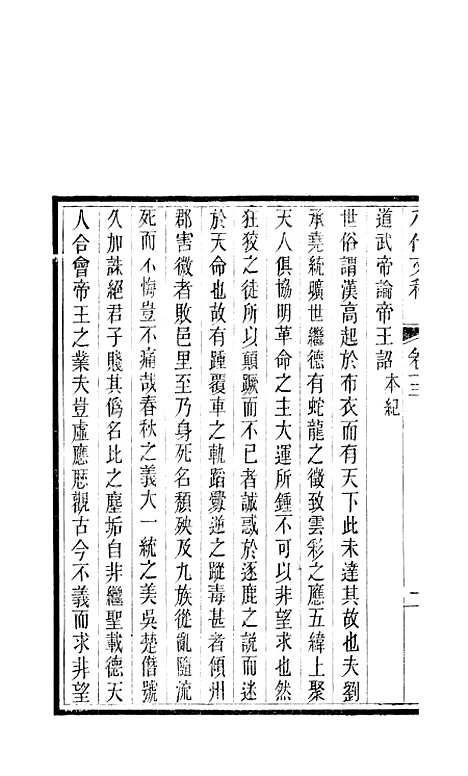 八代文粹 卷三 二
道武帝論帝王詔 本紀
世俗謂漢高起於布衣而有天下此未達其故也夫劉
承堯統曠世繼德有蛇龍之徵致雲彩之應五緯上聚
天人俱協明革命之主大運所鍾不可以非望求也然
狂狡之徒所以顛蹶而不已者誠惑於逐鹿之說而迷
於天命也故有踵覆車之軌蹈釁逆之蹤毒甚者傾州
郡害微者敗邑里至乃身死名頹殃及九族從亂隨流
死而不悔豈不痛哉春秋之義大一統之美吳楚僭號
久加誅絕君子賤其僞名比之塵垢自非繼聖載德天
人合會帝王之業夫豈虛應厯觀古今不義而求非望